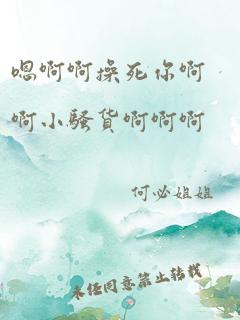 嗯啊啊操死你啊
啊小骚货啊啊啊
何必姐姐
未经同意禁止转载